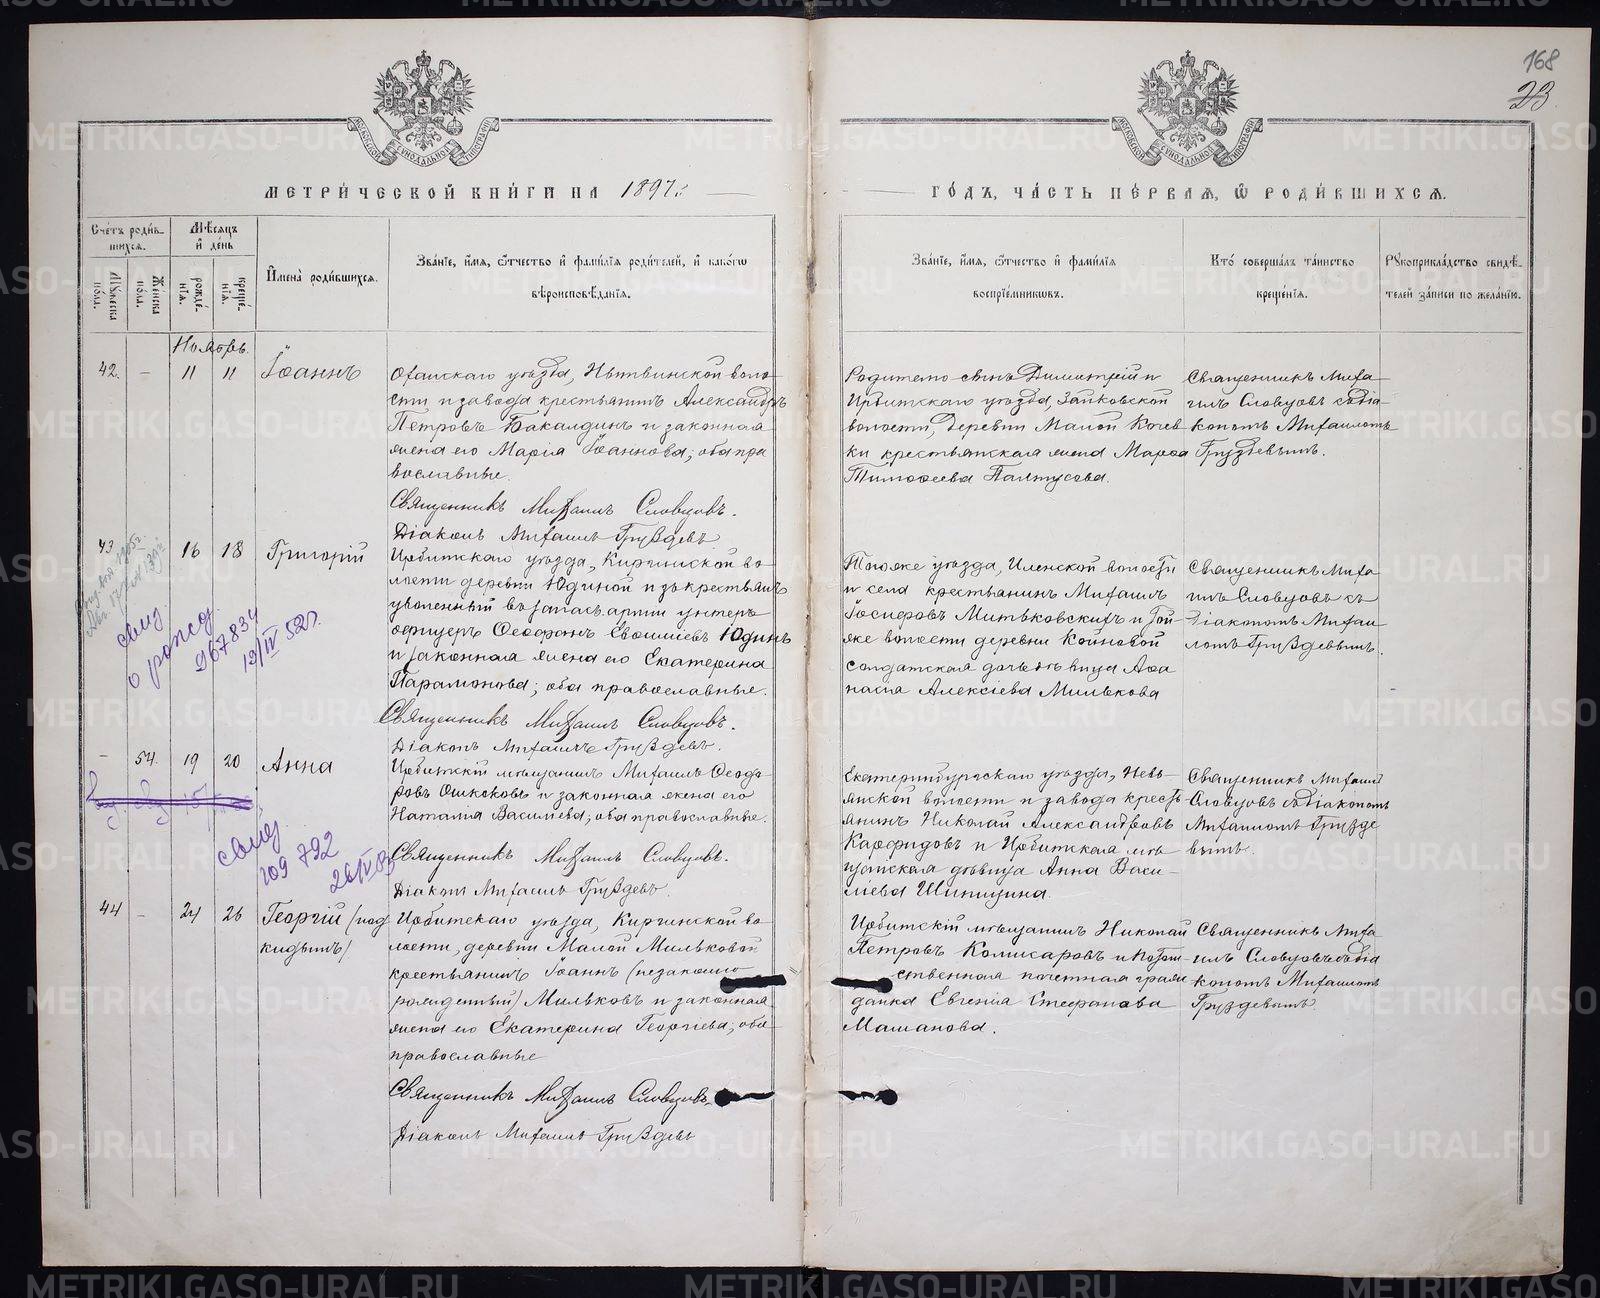 168
23.
МОСКОВСКОЙ СѴНОДАЛЬНОЙ ТИПОГРАФІИ
МОСКОВСКОЙ СѴНОДАЛЬНОЙ ТИПОГРАФІИ
МЕТРИ́ЧЕСКОЙ КНИ́ГИ НА 1897 г.
ГО́ДЪ, ЧА́СТЬ ПЕ́РВАѦ, Ѡ҆ РОДИ́ВШИХСѦ.
Сче́тъ роди́в-
шихсѧ.
Мѣ́сѧцъ
и҆ де́нь
Мꙋ́жеска
по́ла.
Же́нска
по́ла.
рожде́-
нїѧ.
креще́-
нїѧ.
И҆мена̀ роди́вшихсѧ.
Зва́нїе, и҆́мѧ, ѻ҆́тчество и҆ фами́лїѧ роди́телей, и҆ како́гѡ
вѣроисповѣ́данїѧ.
Зва́нїе, и҆́мѧ, ѻ҆́тчество и҆ фами́лїѧ
воспрїе́мникѡвъ.
Кто̀ соверша́лъ та́инство
креще́нїѧ.
Рꙋкоприкла́дство свидѣ́-
телей за́писи по жела́нїю.
Ноябрь.
42. - 11 11 Іоаннъ
Оханскаго уѣзда, Нытвинской воло-
сти и завода крестьянинъ Александръ
Петровъ Бакалдинъ и законная
жена его Марія Іоаннова; оба пра
вославные.
Священникъ Михаилъ Словцовъ.
Діаконъ Михаилъ Груздевъ.
Родителю сынъ Димитрій и
Ирбитскаго уѣзда, Зайковской
волости, деревни Малой Кочев
ки крестьянская жена Марѳа
Тимоѳеева Палтусова.
Священникъ Миха
илъ Словцовъ съ діа
кономъ Михаиломъ
Груздевымъ.
43 16 18 Григорій
Ирбитскаго уѣзда, Киргинской во
лости деревни Юдиной изъ крестьянъ
уволенный въ запасъ арміи унтеръ
офицеръ Ѳеофанъ Юдинъ
и законная жена его Екатерина
Парамонова; оба православные.
Священникъ Михаилъ Словцовъ.
Діаконъ Михаилъ Груздевъ.
Тогоже уѣзда, волости
и села крестьянинъ Михаилъ
Іосифовъ Митьковскихъ и той
же волости деревни
солдатская дочь дѣвица Аѳа
насія Алексіева Милькова
Священникъ Миха
илъ Словцовъ съ
діакономъ Михаи
ломъ Груздевымъ.
свид
о рожд.
967834
19/IV 52г.
- 54. 19 20 Анна
Ирбитскій мѣщанинъ Михаилъ Ѳеодо-
ровъ и законная жена его
Наталія Василіева; оба православные.
Священникъ Михаилъ Словцовъ.
Діаконъ Михаилъ Груздевъ.
Екатеринбургскаго уѣзда, Невь-
янской волости и завода кресть
янинъ Николай Александровъ
Карфидовъ и Ирбитская мѣ-
щанская дѣвица Анна Васи-
ліева Шипицина.
Священникъ Михаилъ
Словцовъ съ діакономъ
Михаиломъ Грузде
вымъ.
свид
109 792
44 - 24 26 Георгій (под
кидышъ)
Ирбитскаго уѣзда, Киргинской во
лости, деревни Малой Мильковой
крестьянинъ Іоаннъ (незаконно
рожденный) Мильковъ и законная
жена его Екатерина Георгіева; оба
православные
Священникъ Михаилъ Словцовъ.
Діаконъ Михаилъ Груздевъ
Ирбитскій мѣщанинъ Николай
Петровъ Комисаровъ и потом-
ственная почетная граж
данка Евгенія Стефанова
Машанова.
Священникъ Миха
илъ Словцовъ съ діа
кономъ Михаиломъ
Груздевымъ.
METRIKI.GASO-URAL.RU